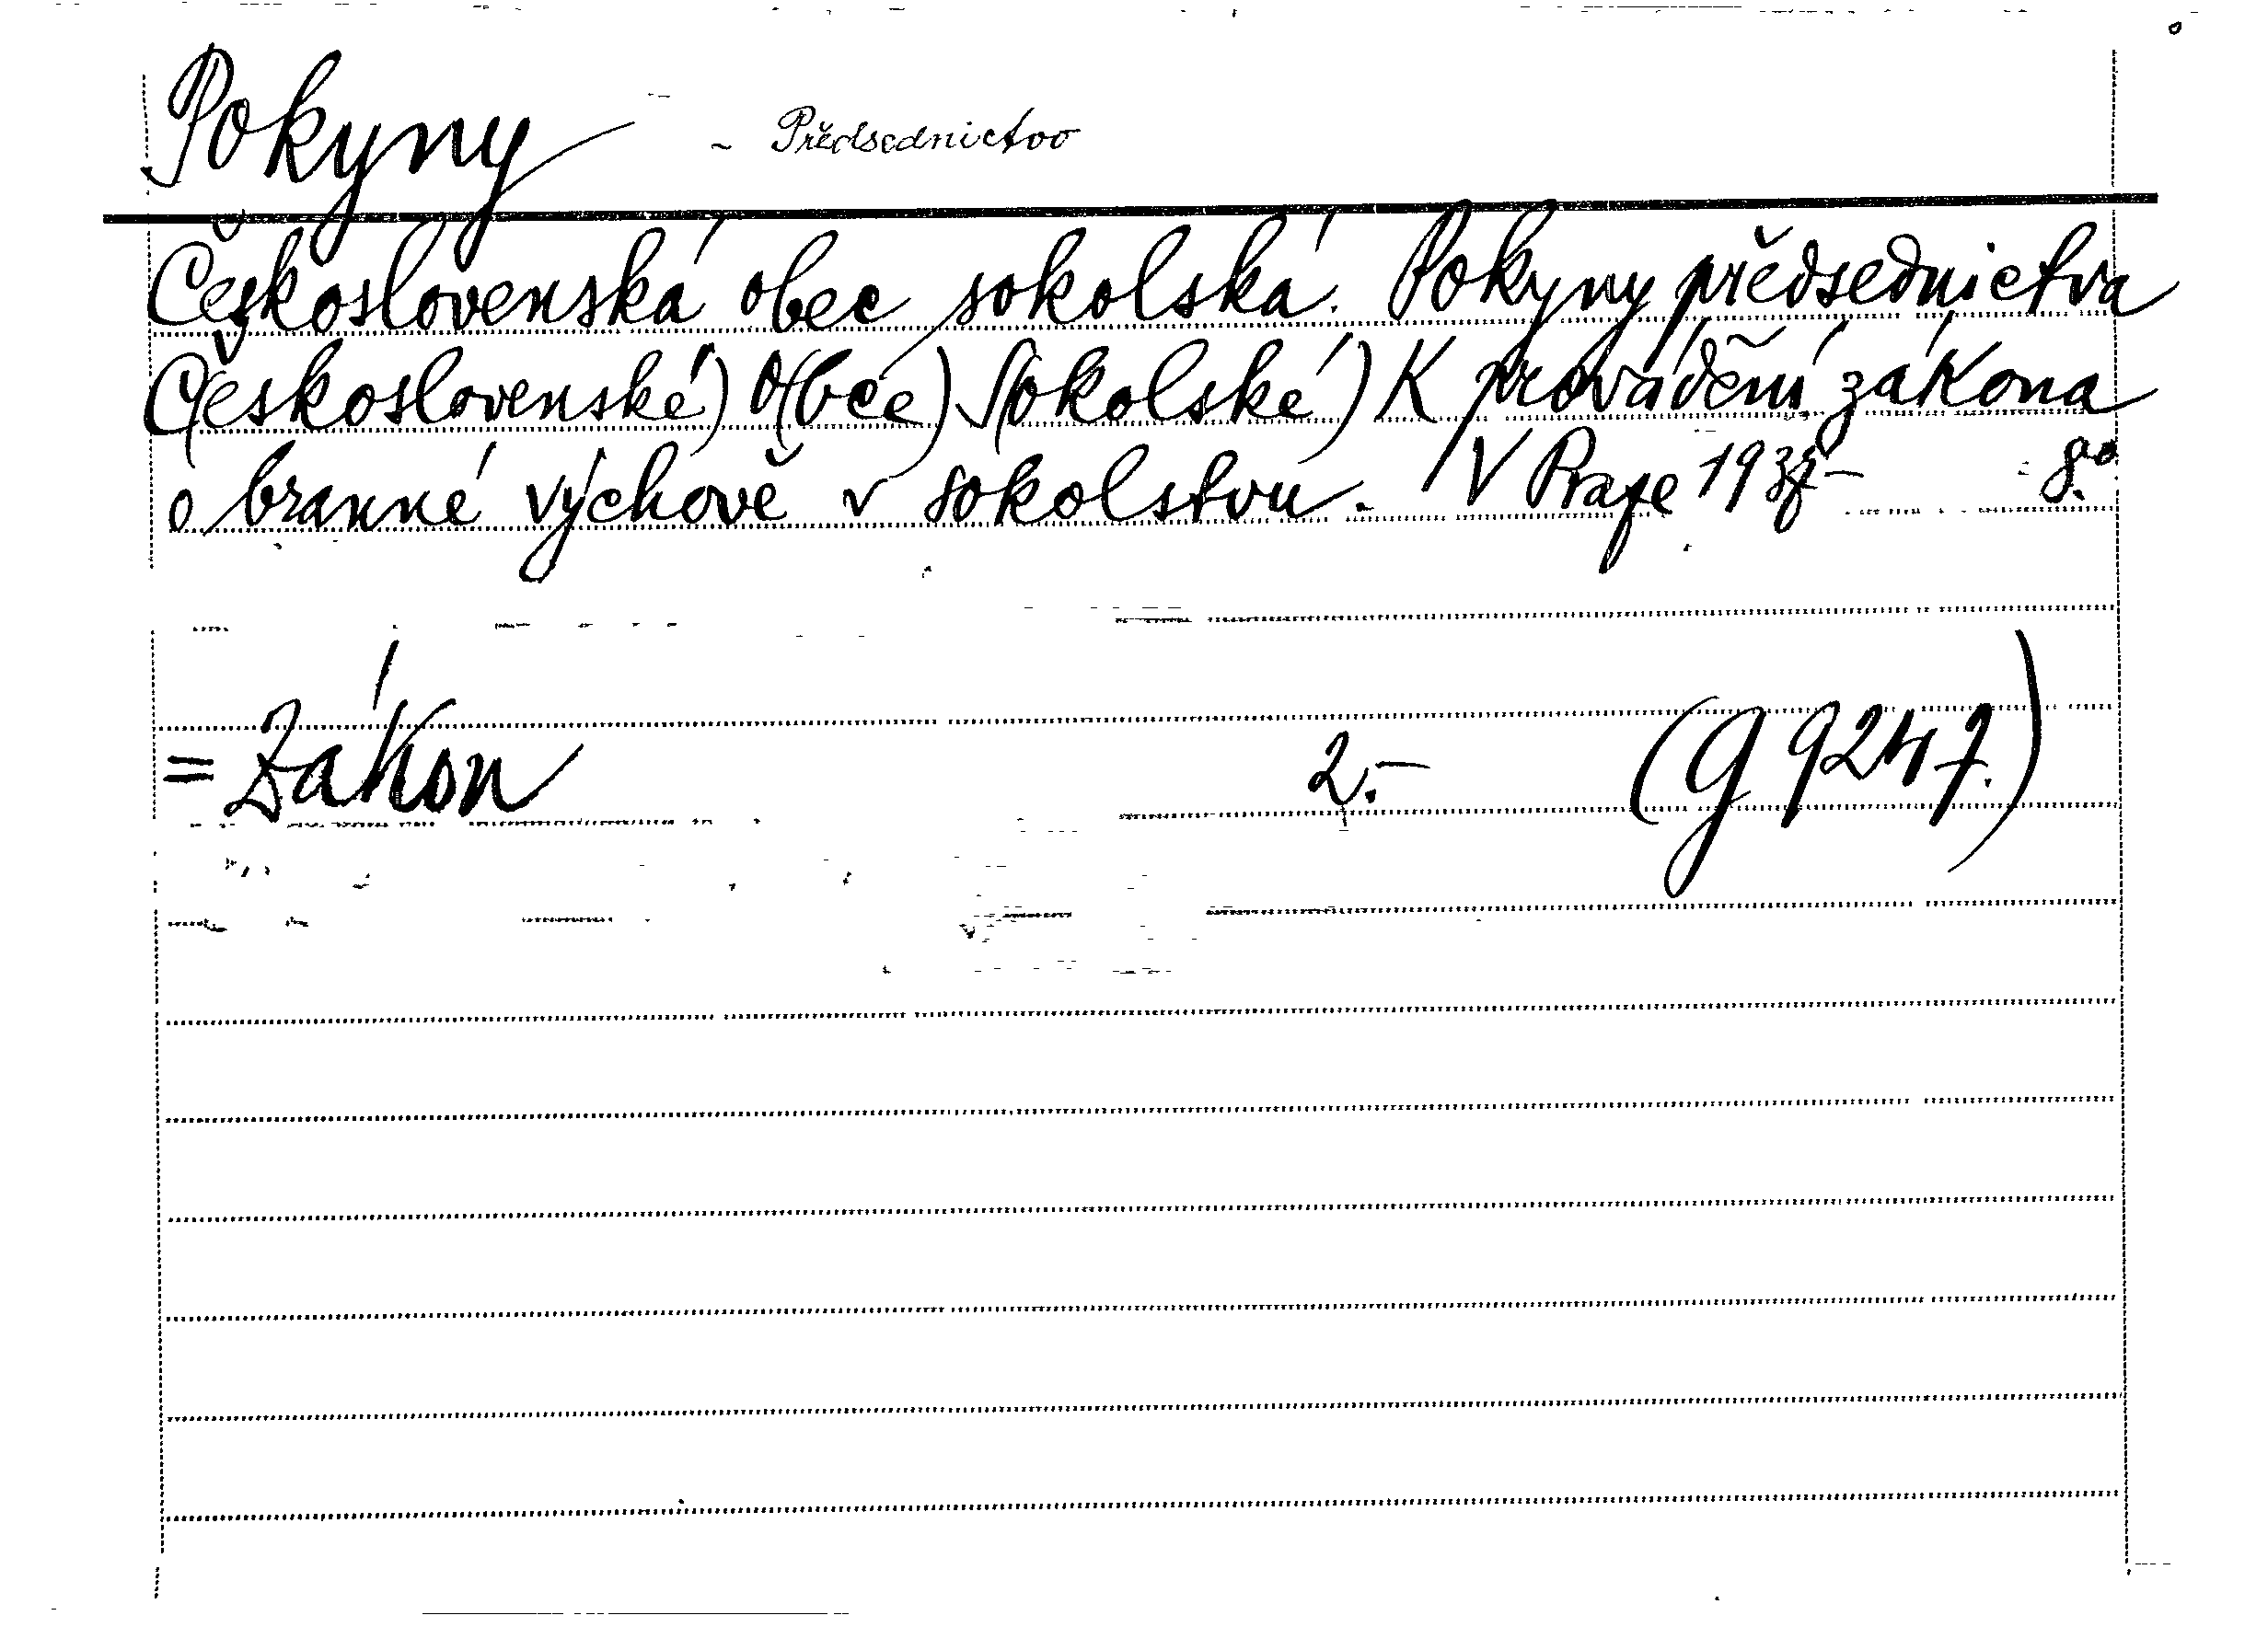 Pokyny ~ Předsednictvo
Československá obec sokolská. Pokyny předsednictva
Č(eskoslovenské) O(bce) S(okolské) K provádění zákona
o branné výchově v sokolstvu. V Praze 8°
= Zákon 2.- (g 9247.)